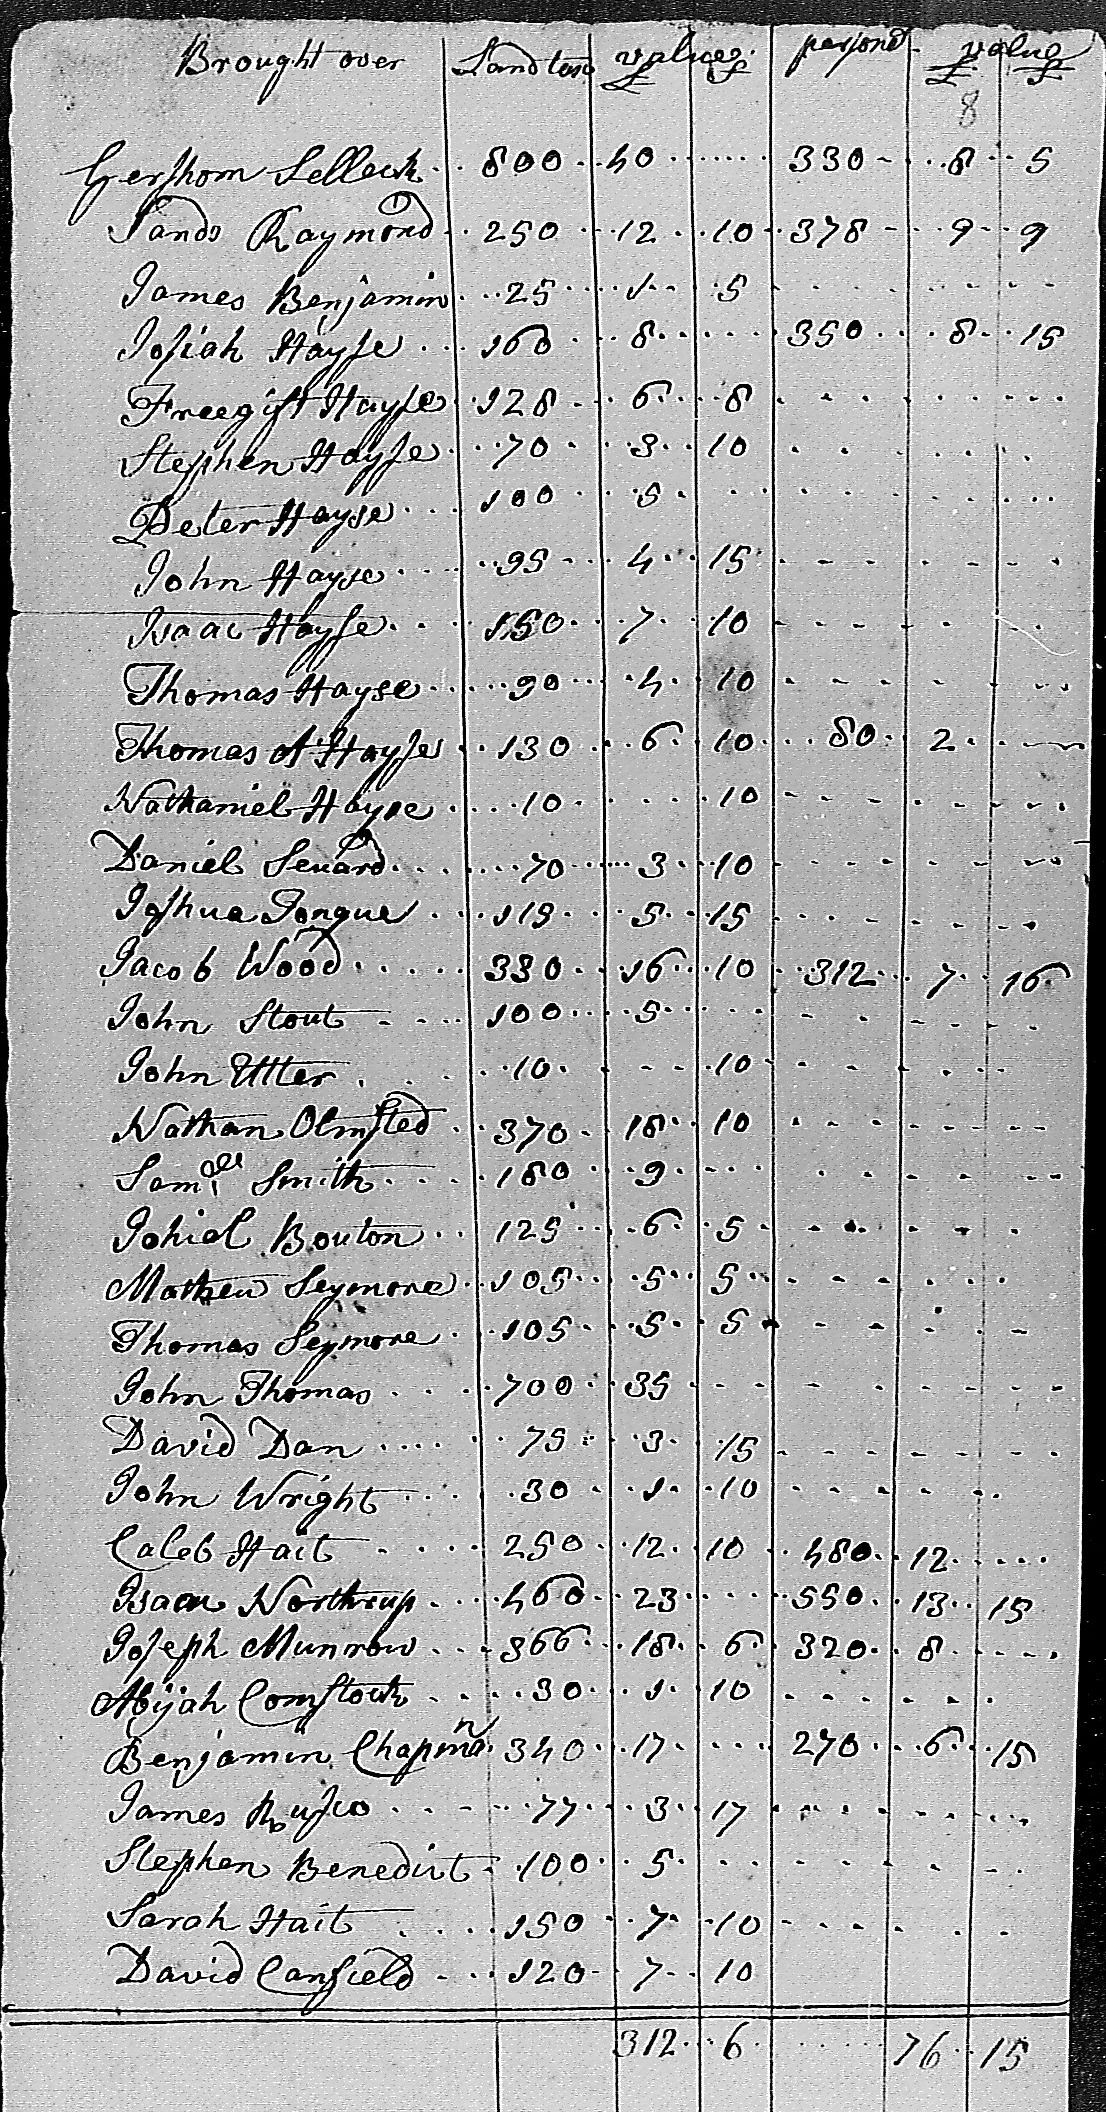 Brought over Land tax value £ s personel value £ s
8
GershomSelleck 800 40 330 8 5
Sands Raymond 250 12 10 378 9 9
James Benjamin 25 1 5
Josiah Hayse 160 8 350 8 15
Freegift Hayse 128 6 8
Stephen Hayse 70 3 10
Peter Hayse 100 5
John Hayse 95 4 15
Isaac Hayse 150 7 10
Thomas Hayse 90 4 10
Thomas A Hayse 130 6 10 80 2
Nathaniel Hayse 10 10
Daniel Seward 70 3 10
Joshua Tongue 115 5 15
Jacob Wood 330 16 10 312 7 16
John Stout 100 5
John Utter 10 10
Nathan Olmsted 370 18 10
Samll Smith 180 9
Jehiel Bouton 125 6 5
Mathew Seymore 105 5 5
Thomas Seymore 105 5 5
John Thomas 700 35
David Dan 75 3 15
John Wright 30 1 10
Caleb Hait 250 12 10 480 12
Isaac Northrup 460 23 550 13 15
Joseph Munrow 366 18 6 320 8
Abijah Comstock 30 1 10
Benjamin Chapman 340 17 270 6 15
James Rusco 77 3 17
Stephen Benedict 100 5
Sarah Hait 150 7 10
David Canfield 120 7 10
312 6 76 15